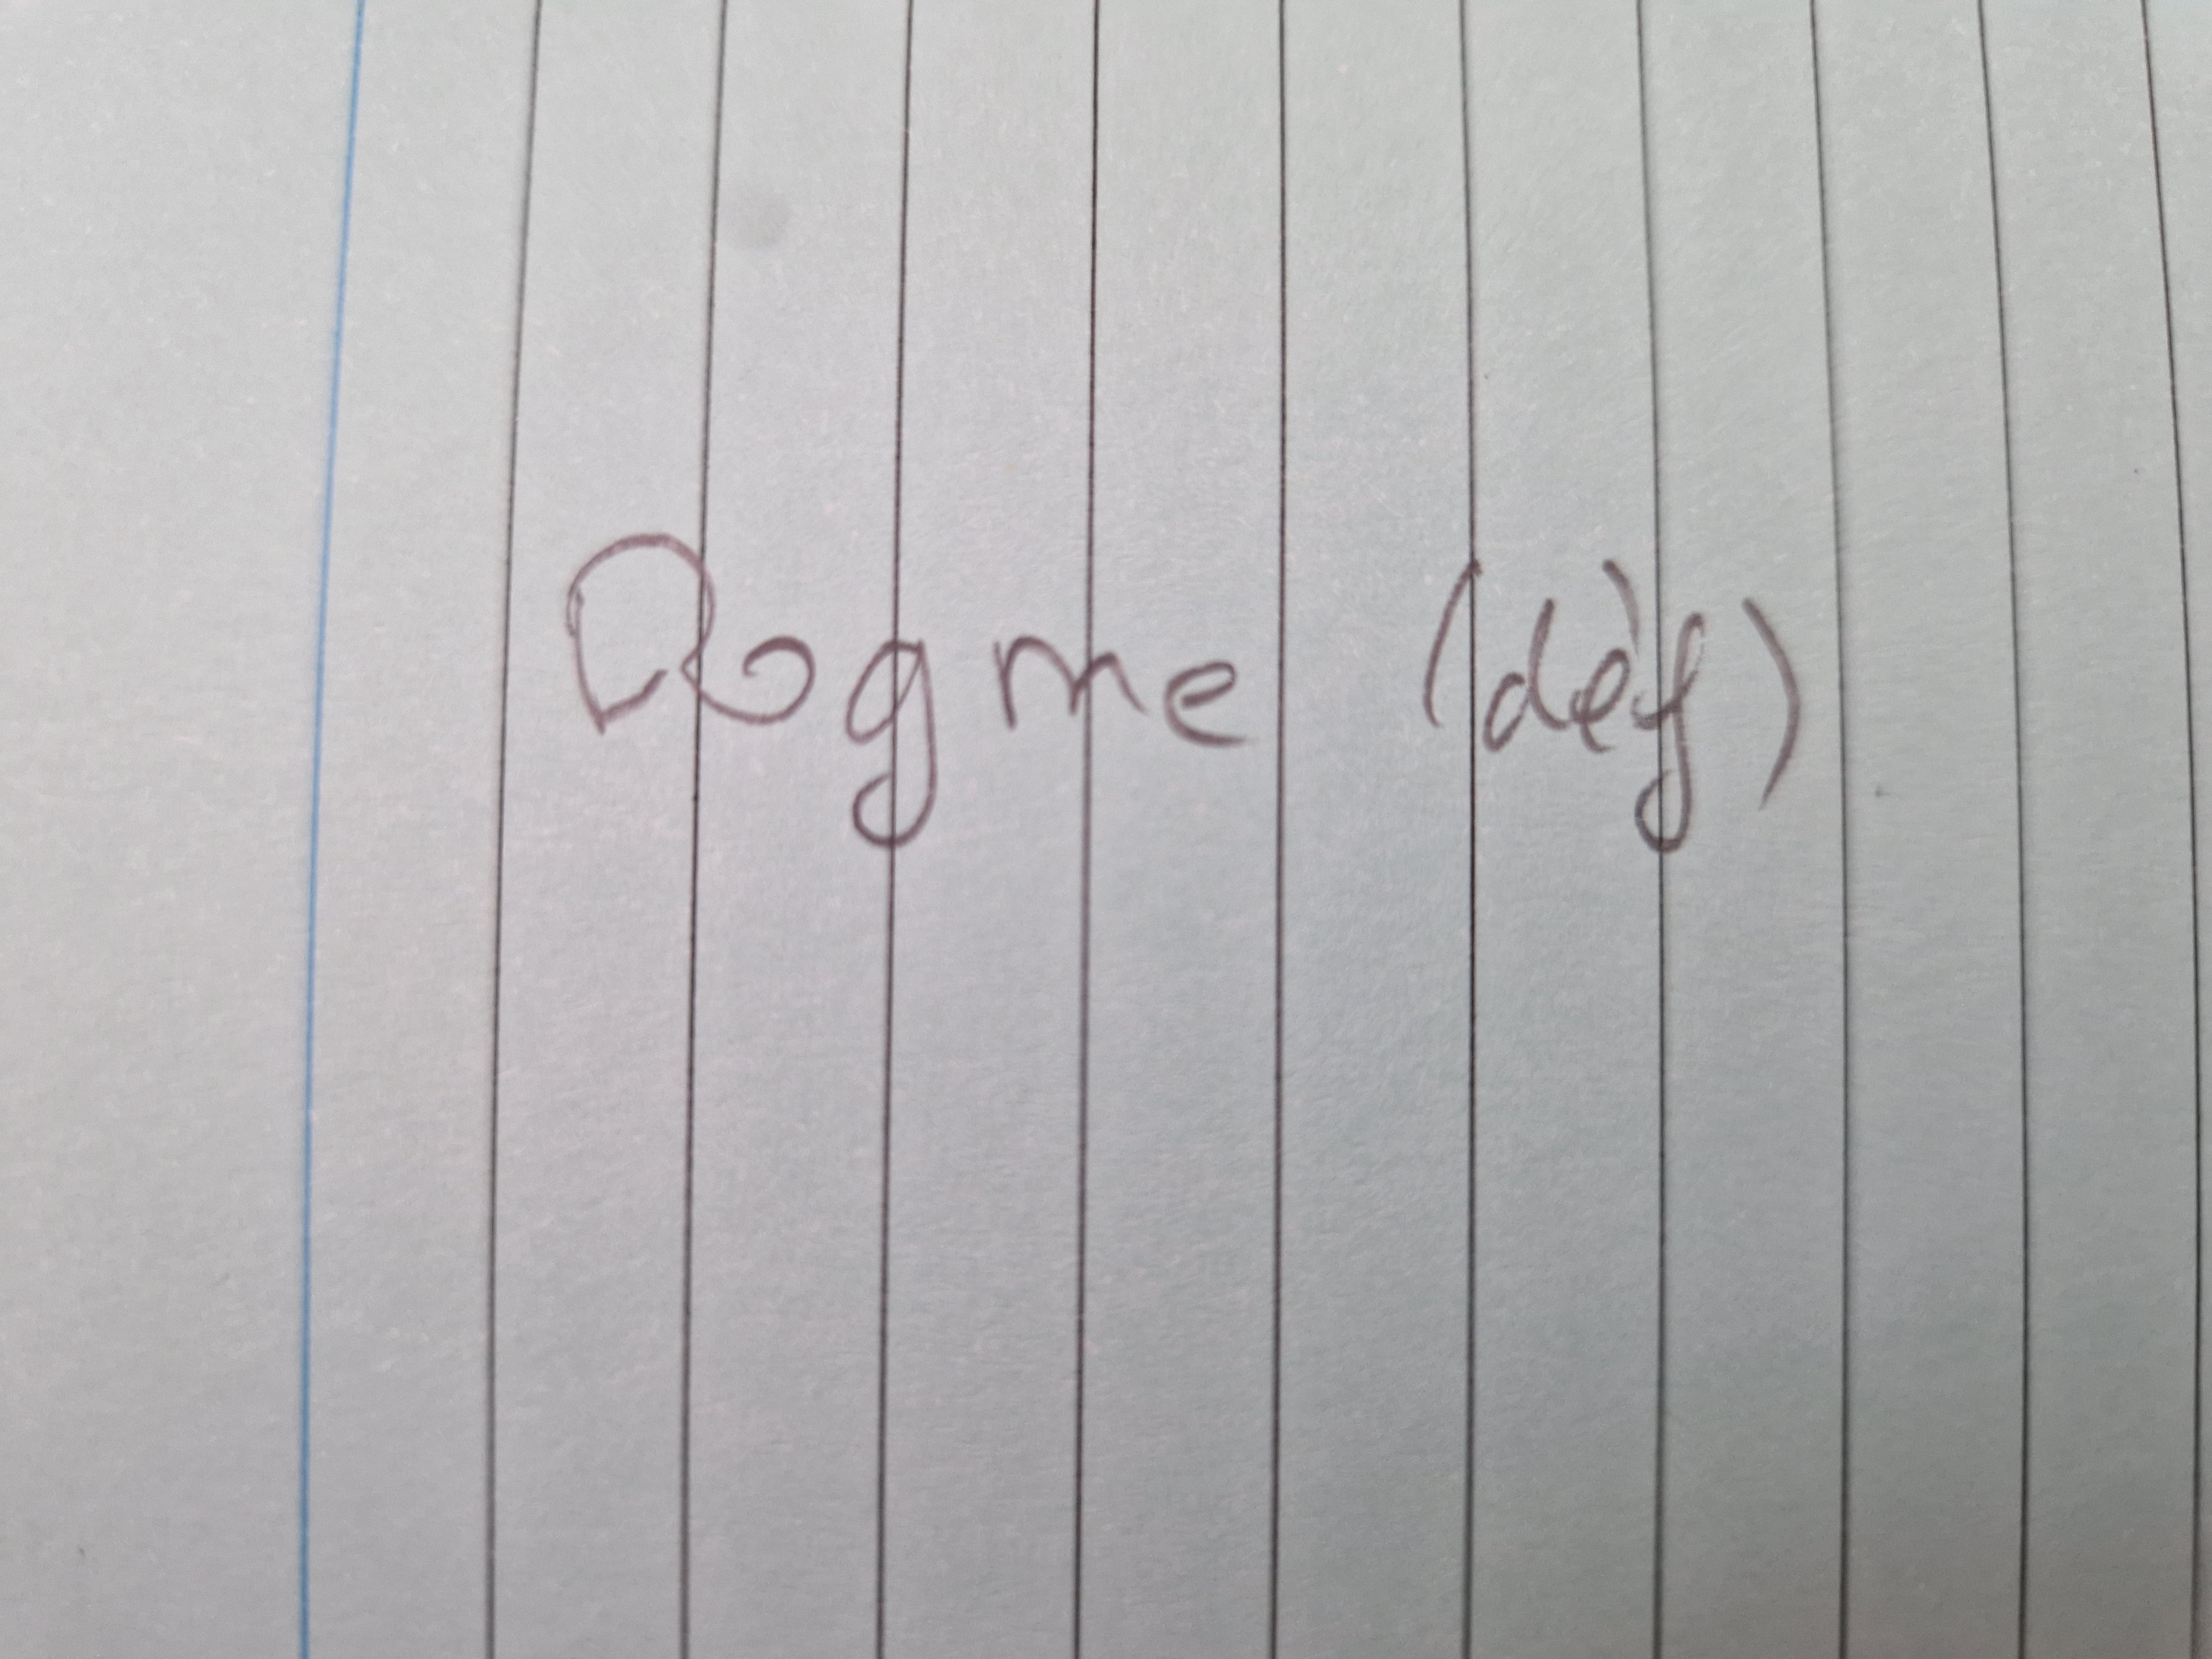 Dogme (dèf)